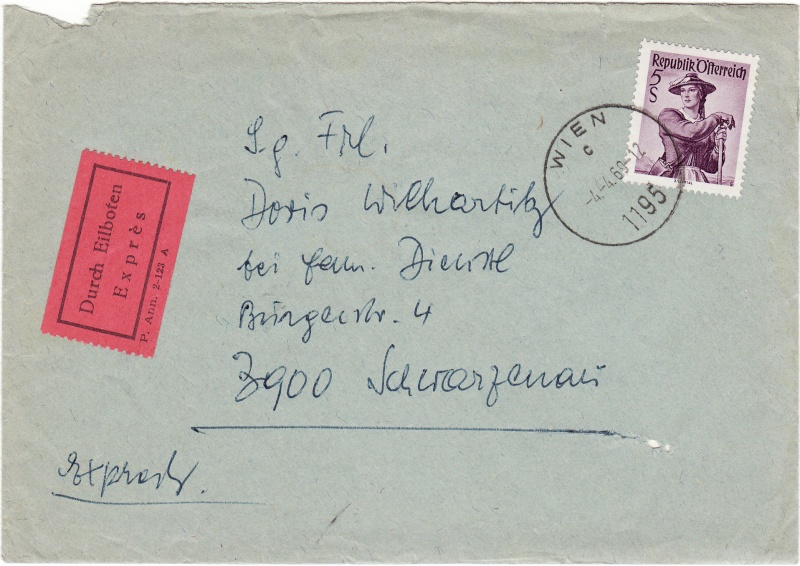 Republik Österreich
5
S
WIEN
c
-4.-4.69-12
1195
Durch Eilboten
Exprès
P. Ann. 2-123 A
S.g. Frl.
Doris Wilhartitz
bei Fam. Dienstl
Bürgerstr. 4
3900 Schwarzenau